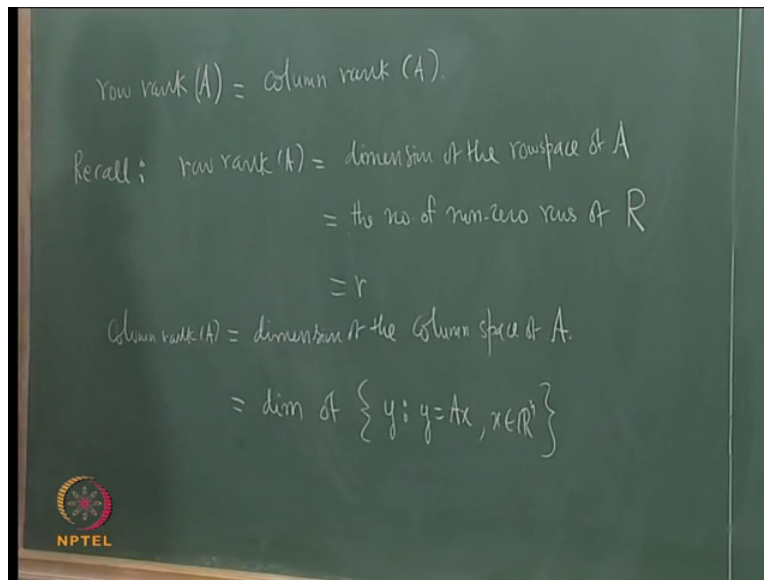 row rank (A) = column rank (A).
Recall : row rank (A) = dimension of the rowspace of A
= the no. of non-zero rows of R
= r
Column rank (A) = dimension of the column space of A.
= dim of { y : y = Ax , x ∈ ℝⁿ }
NPTEL